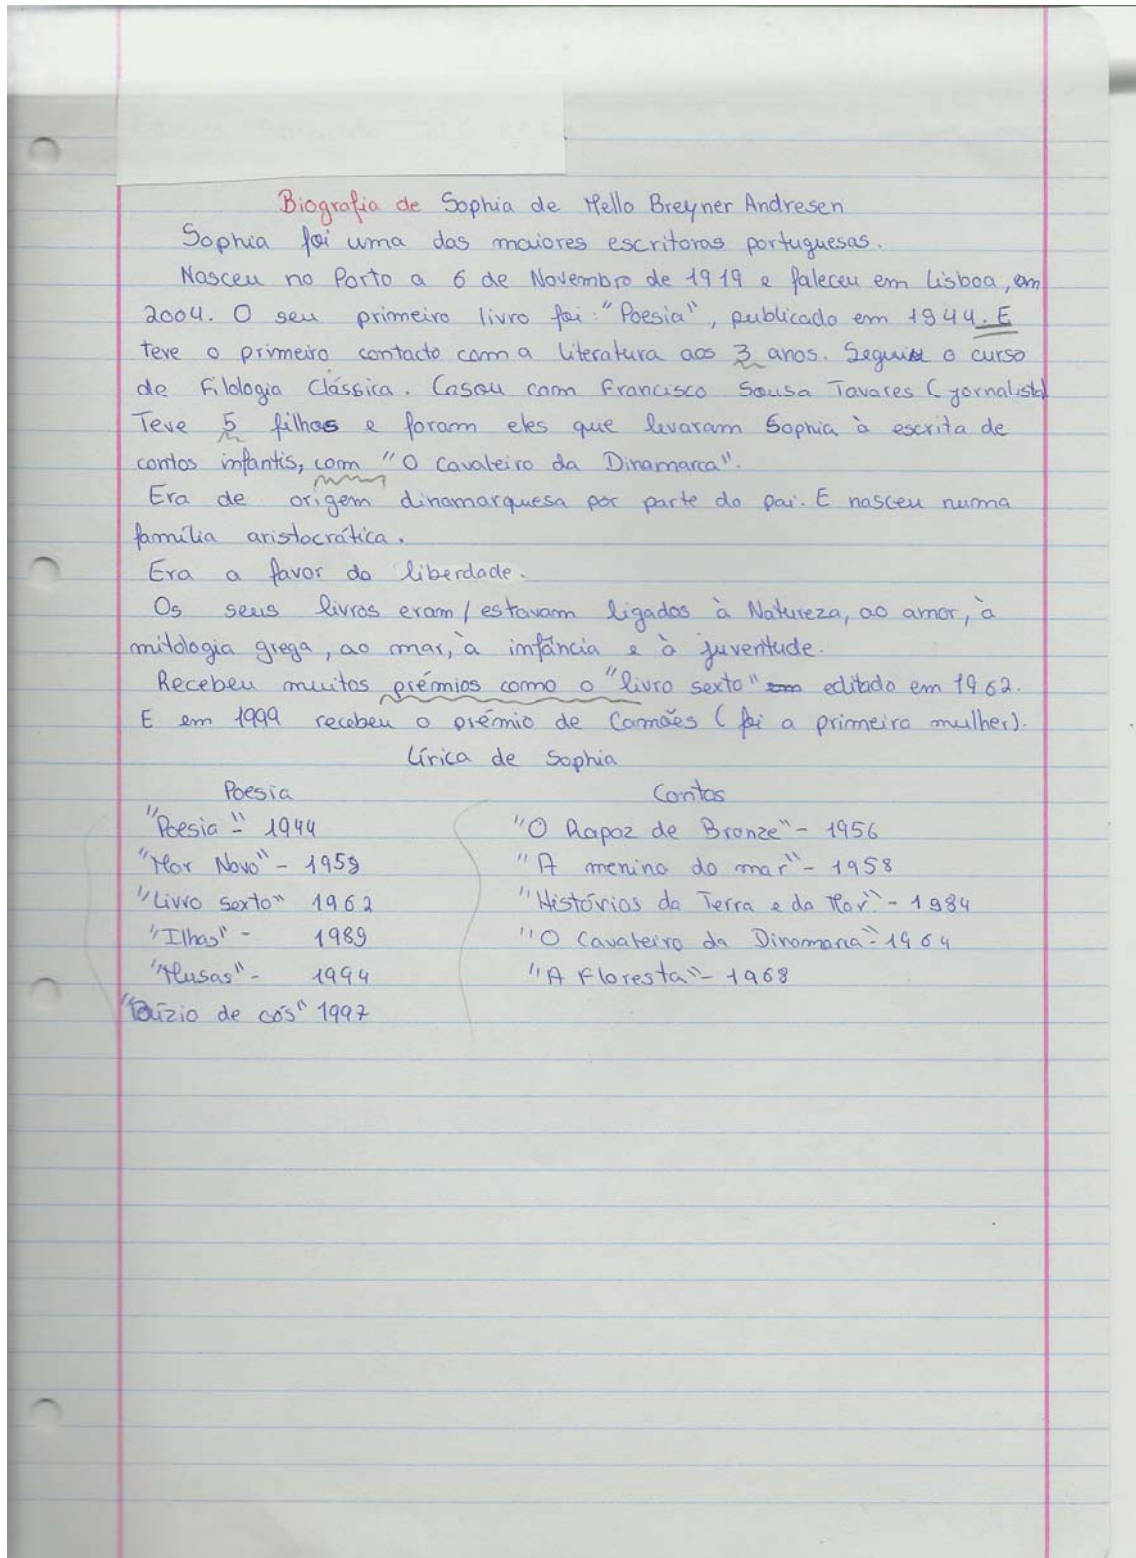 Biografia de Sophia de Mello Breyner Andresen
Sophia foi uma das maiores escritoras portuguesas.
Nasceu no Porto a 6 de Novembro de 1919 e faleceu em Lisboa, em
2004. O seu primeiro livro foi: "Poesia", publicado em 1944. E
teve o primeiro contacto com a literatura aos 3 anos. Seguiu o curso
de Filologia Clássica. Casou com Francisco Sousa Tavares (jornalista)
Teve 5 filhos e foram eles que levaram Sophia à escrita de
contos infantis, com "O Cavaleiro da Dinamarca".
Era de origem dinamarquesa por parte do pai. E nasceu numa
família aristocrática.
Era a favor da liberdade.
Os seus livros eram/estavam ligados à Natureza, ao amor, à
mitologia grega, ao mar, à infância e à juventude.
Recebeu muitos prémios como o "livro sexto" editado em 1962.
E em 1999 recebeu o prémio de Camões (foi a primeira mulher).
Lírica de Sophia
Poesia Contos
"Poesia" - 1944 "O Rapaz de Bronze" - 1956
"Mar Novo" - 1958 "A menina do mar" - 1958
"Livro sexto" 1962 "Histórias da Terra e do Mar" - 1984
"Ilhas" - 1989 "O Cavaleiro da Dinamarca" - 1964
"Musas" - 1994 "A Floresta" - 1968
"Búzio de cós" 1997